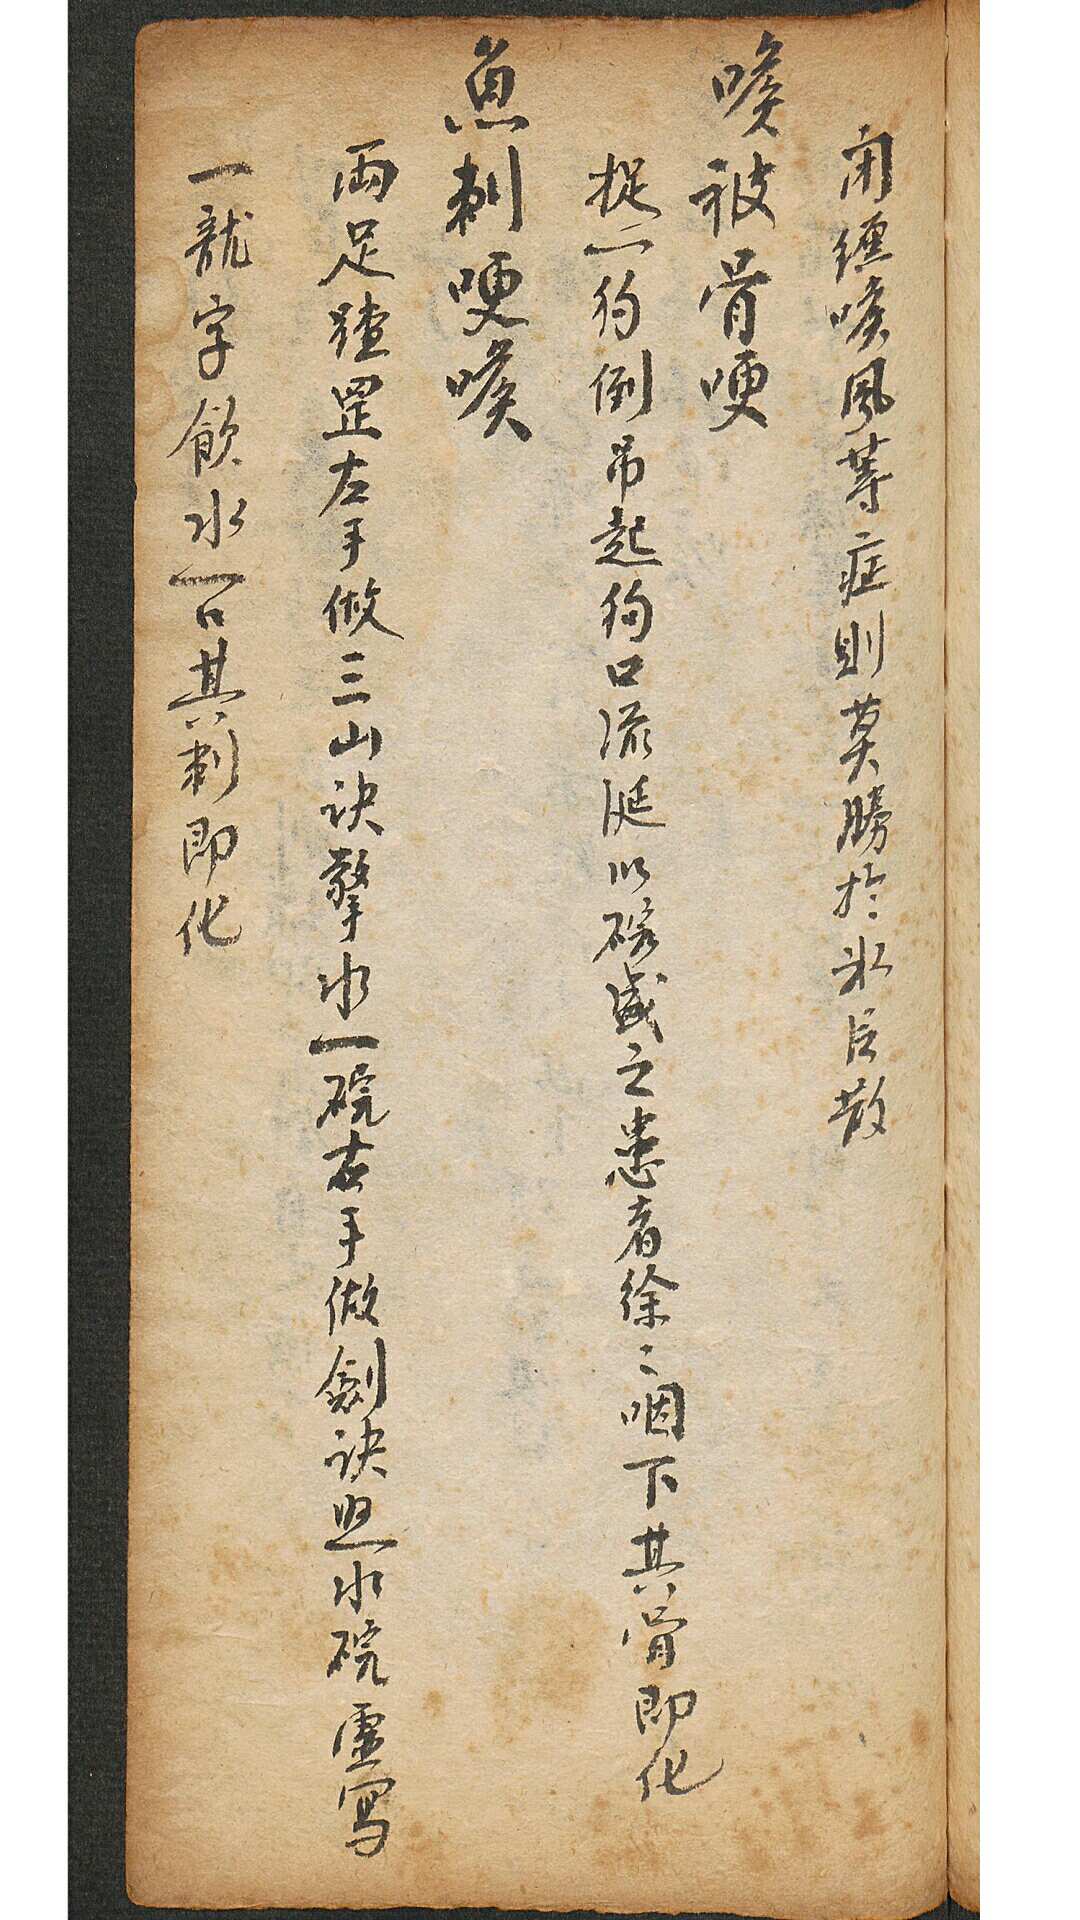 閉纏喉風等症則莫勝於冰臣散
喉被骨哽
捉一狗倒吊起狗口流涎以碗盛之患者徐々咽下其骨即化
魚刺哽喉
両足踏罡左手做三山訣擎水一碗右手做劍訣照水碗虛寫
一龍字飲水一口其刺即化